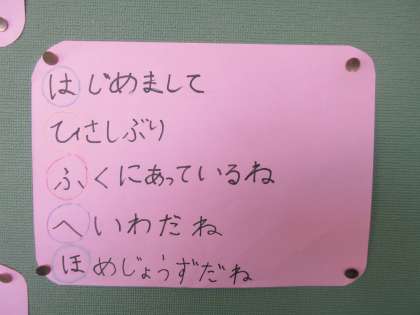 はじめまして
ひさしぶり
ふくにあっているね
へいわだね
ほめじょうずだね